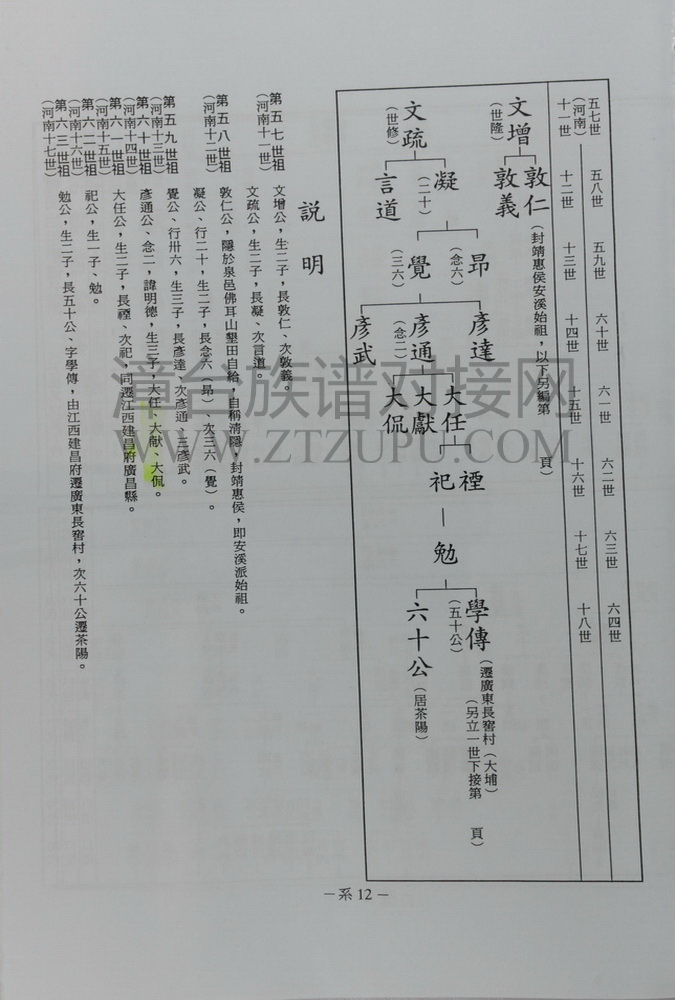 五七世　五八世　五九世　六十世　六一世　六二世　六三世　六四世
（河南）十一世　十二世　十三世　十四世　十五世　十六世　十七世　十八世
文增（世隆）
敦仁（封靖惠侯安溪始祖，以下另編第　頁）
敦義
文疏（世修）
凝（二十）
言道
昂（念六）
覺（三六）
彥達
彥通（念二）
彥武
大任
大獻
大侃
禋
祀
勉
學傳（五十公）（遷廣東長窖村（大埔）（另立一世下接第　頁）
六十公（居茶陽）
説明
第五七世祖（河南十一世）　文增公，生二子，長敦仁、次敦義。
文疏公，生二子，長凝、次言道。
第五八世祖（河南十二世）　敦仁公，隱於泉邑佛耳山墾田自給，自稱清隱，封靖惠侯，即安溪派始祖。
凝公、行二十，生二子，長念六（昂）、次三六（覺）。
第五九世祖（河南十三世）　覺公、行卅六，生三子，長彥達、次彥通、三彥武。
第六十世祖（河南十四世）　彥通公、念二，諱明德，生三子，大任、大献、大侃。
第六一世祖（河南十五世）　大任公，生二子，長禋、次祀，同遷江西建昌府廣昌縣。
第六二世祖（河南十六世）　祀公，生一子、勉。
第六三世祖（河南十七世）　勉公，生二子，長五十公、字學傳，由江西建昌府遷廣東長窖村，次六十公遷茶陽。
－系12－
族谱对接网
WWW.ZTZUPU.COM